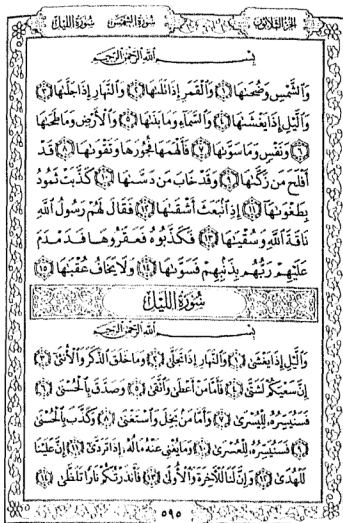 الجزء الثلاثون سورة الشمس سورة الليل
بسم الله الرحمن الرحيم
وَالشَّمْسِ وَضُحَىٰهَا ١ وَالْقَمَرِ إِذَا تَلَىٰهَا ٢ وَالنَّهَارِ إِذَا جَلَّىٰهَا ٣
وَالَّيْلِ إِذَا يَغْشَىٰهَا ٤ وَالسَّمَآءِ وَمَا بَنَىٰهَا ٥ وَالْأَرْضِ وَمَا طَحَىٰهَا
٦ وَنَفْسٍ وَمَا سَوَّىٰهَا ٧ فَأَلْهَمَهَا فُجُورَهَا وَتَقْوَىٰهَا ٨ قَدْ
أَفْلَحَ مَن زَكَّىٰهَا ٩ وَقَدْ خَابَ مَن دَسَّىٰهَا ١٠ كَذَّبَتْ ثَمُودُ
بِطَغْوَىٰهَآ ١١ إِذِ انۢبَعَثَ أَشْقَىٰهَا ١٢ فَقَالَ لَهُمْ رَسُولُ اللَّهِ
نَاقَةَ اللَّهِ وَسُقْيَٰهَا ١٣ فَكَذَّبُوهُ فَعَقَرُوهَا فَدَمْدَمَ
عَلَيْهِمْ رَبُّهُم بِذَنۢبِهِمْ فَسَوَّىٰهَا ١٤ وَلَا يَخَافُ عُقْبَٰهَا ١٥
سُورَةُ اللَّيْلِ
بسم الله الرحمن الرحيم
وَالَّيْلِ إِذَا يَغْشَىٰ ١ وَالنَّهَارِ إِذَا تَجَلَّىٰ ٢ وَمَا خَلَقَ الذَّكَرَ وَالْأُنثَىٰٓ ٣
إِنَّ سَعْيَكُمْ لَشَتَّىٰ ٤ فَأَمَّا مَنْ أَعْطَىٰ وَاتَّقَىٰ ٥ وَصَدَّقَ بِالْحُسْنَىٰ ٦
فَسَنُيَسِّرُهُۥ لِلْيُسْرَىٰ ٧ وَأَمَّا مَنۢ بَخِلَ وَاسْتَغْنَىٰ ٨ وَكَذَّبَ بِالْحُسْنَىٰ
٩ فَسَنُيَسِّرُهُۥ لِلْعُسْرَىٰ ١٠ وَمَا يُغْنِي عَنْهُ مَالُهُۥٓ إِذَا تَرَدَّىٰٓ ١١ إِنَّ عَلَيْنَا
لَلْهُدَىٰ ١٢ وَإِنَّ لَنَا لَلْآخِرَةَ وَالْأُولَىٰ ١٣ فَأَنذَرْتُكُمْ نَارًا تَلَظَّىٰ ١٤
٥٩٥